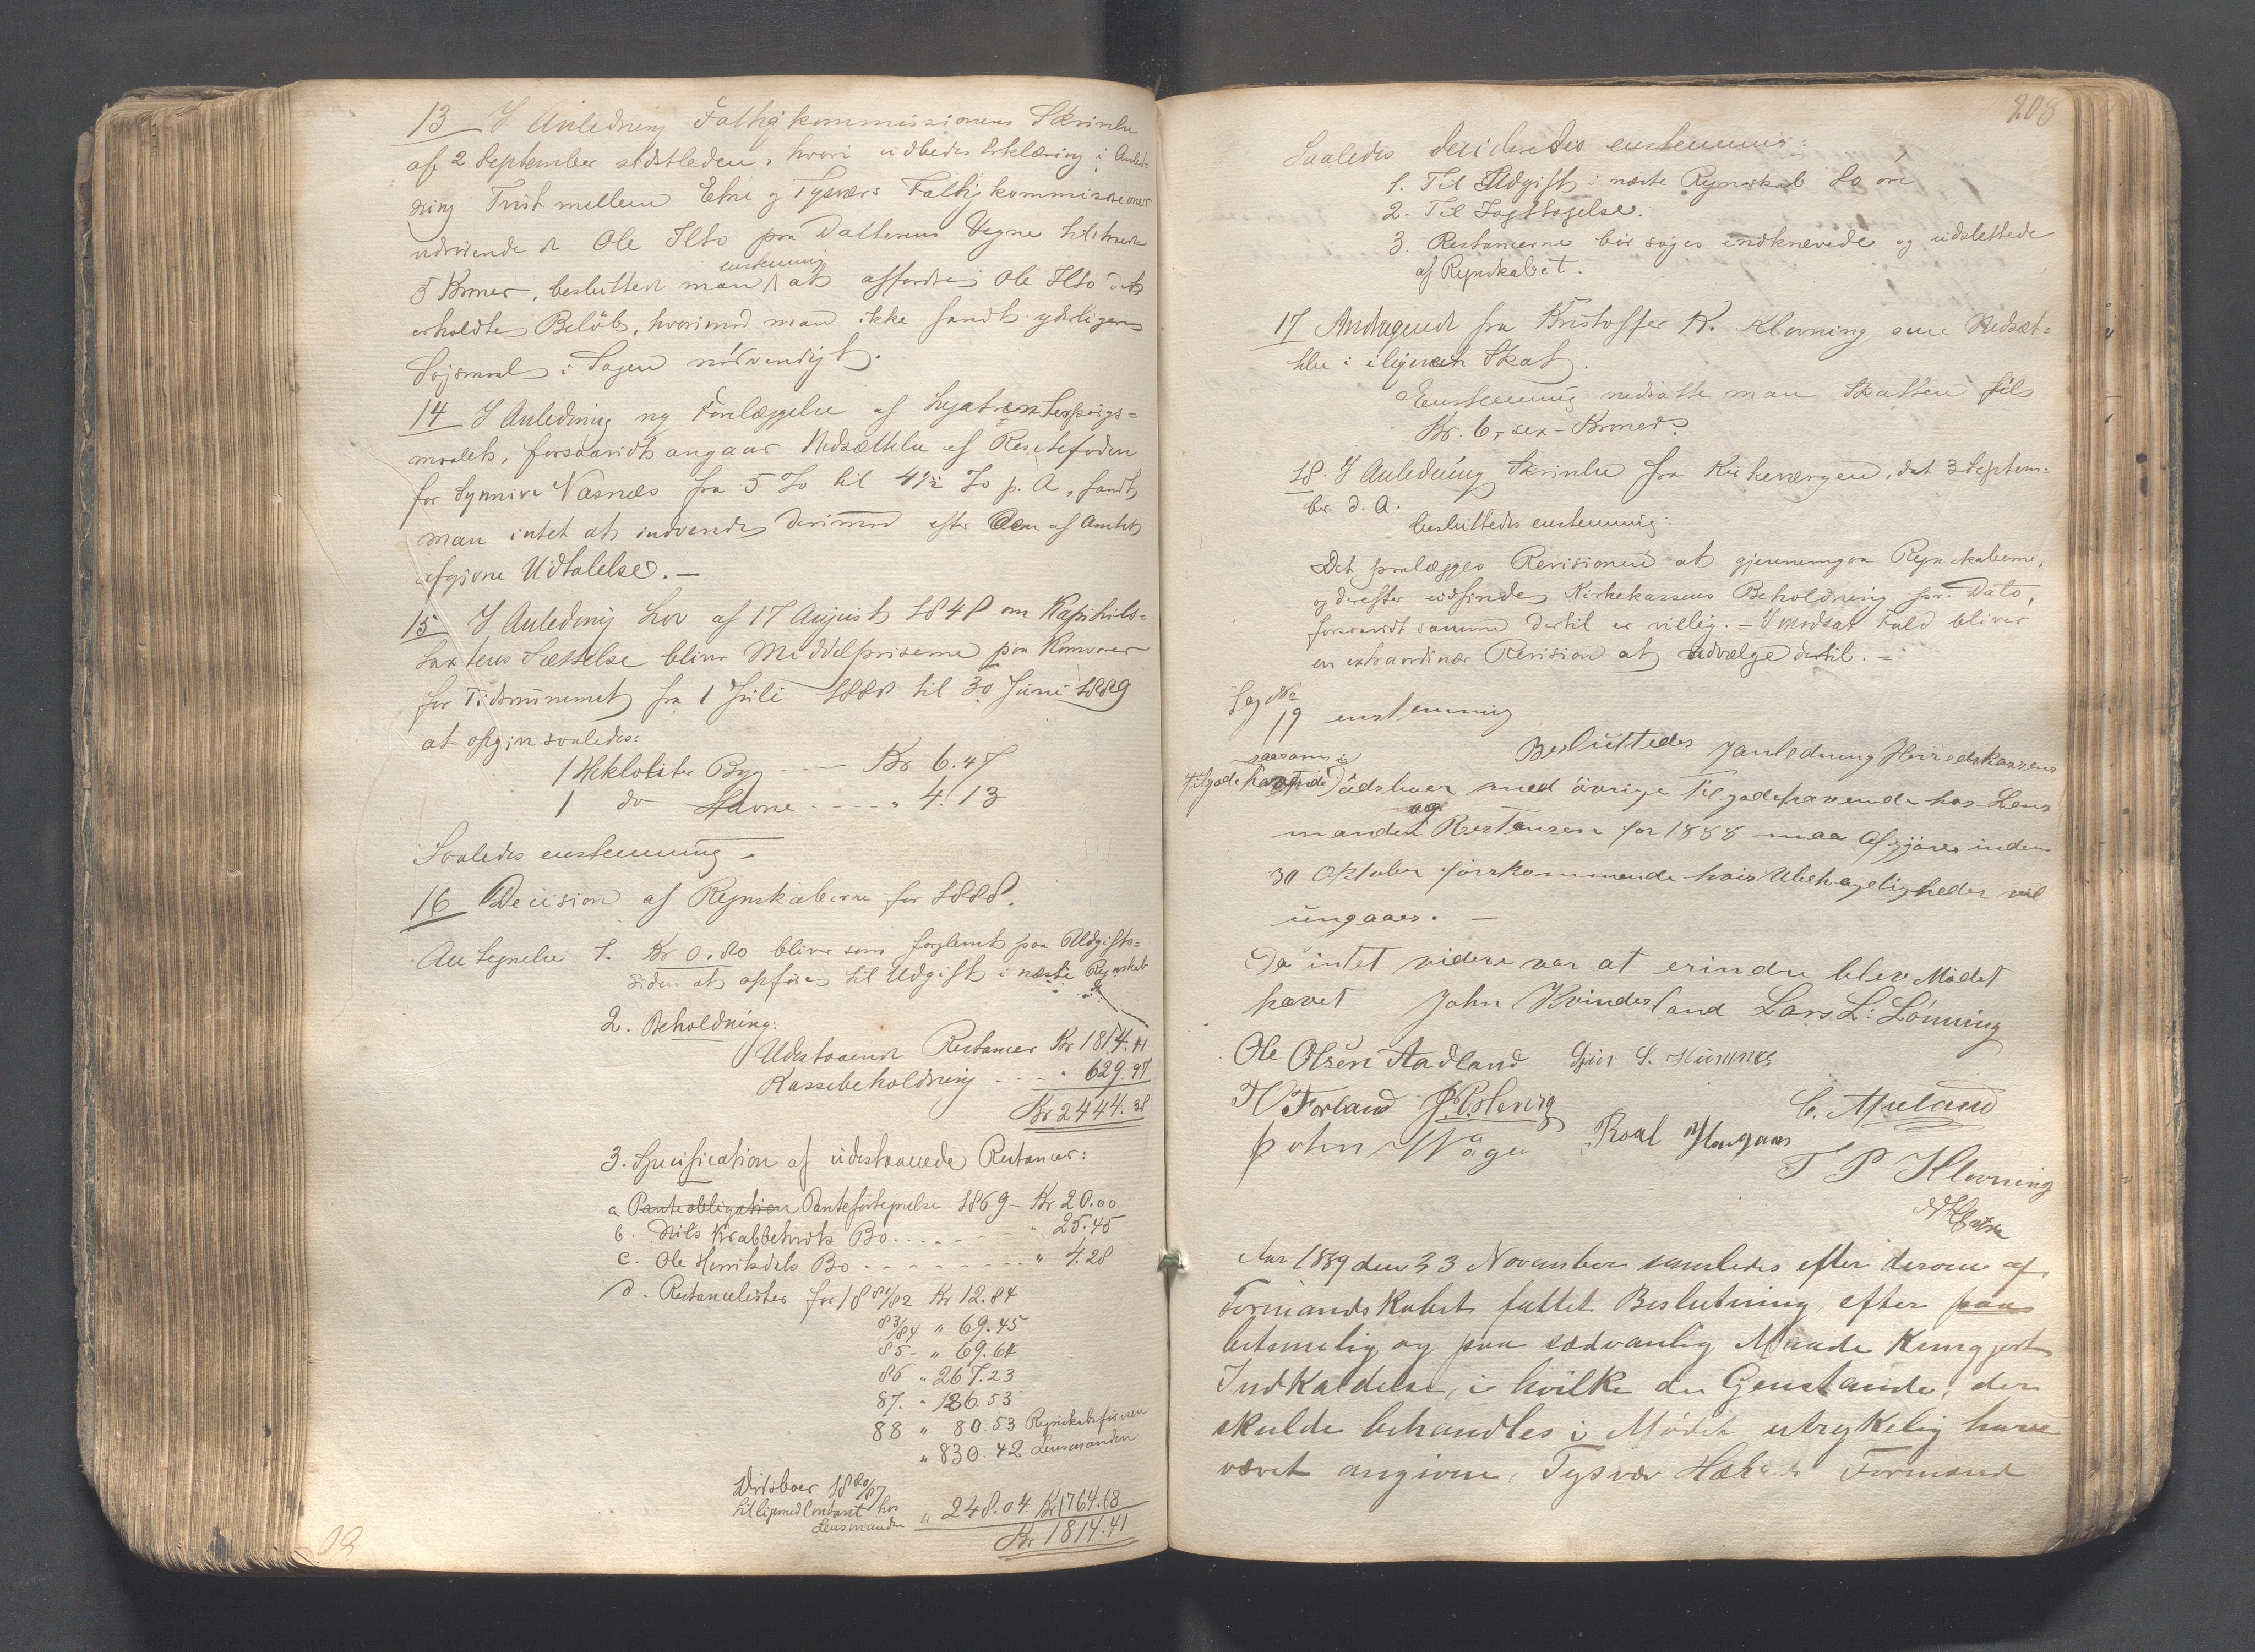 13 I Anledning Fattigkommissionens Skrivelse
af 2 September sidstleden, hvori udbedes Erklæring i Anled-
ning Tvist mellem Etne og Tysvær Fattigkommissioner
vedrørende Ole Ilto paa Datterens Vegne
enstemmig
5 Kroner, besluttedes man at affordre Ole Ilto det
erholdte Beløb, hvorimod man ikke fandt yderligere
Søjsmaal i Sagen nødvendigt.
14 I Anledning ny Forelæggelse af
maalets, forsaavidt angaar Nedsættelse af Rentefoden
for Synnive Vasnæs fra 5 % til 4½ % p. A., fandt
man intet at indvende derimod efter den af Amtet
afgivne Udtalelse. —
15 I Anledning Lov af 17 August 1848 om Kapitels-
taxtens Sættelse bliver Middelpriserne paa Kornvarer
for Tidsrummet fra 1 Juli 1888 til 30 Juni 1889
at opgive saaledes:
1 Hektoliter Byg - - - Kr 6.47
1 do Havre - - - - " 4.13
Saaledes enstemmig.
16 Decision af Regnskaberne for 1888.
Antegnelse 1. Kr 0.80 bliver som forglemt paa Udgifts-
siden at opføres til Udgift i næste Regnskab
2. Beholdning:
Udestaaende Restancer Kr 1814.41
Kassebeholdning - - - " 629.97
Kr 2444.38
3. Specification af udestaaende Restancer:
a Panteobligation Panteforteg nelse 1869 - Kr 20.00
b. Nils Krabbetveits Bo - - - - - - " 25.45
c. Ole Henriksdals Bo - - - - - - - " 4.28
d. Restancelister for 1881/82 Kr 12.84
83/84 " 69.45
85 - " 69.64
86 " 267.23
87. " 186.53
88 " 80.53 Regnskabsføreren
" 830.42 Lensmanden
1886/87
hos
Lensmanden " 248.04 Kr 1764.68
Kr 1814.41
208
Saaledes decideredes enstemmig:
1. Til Udgift i næste Regnskab 80 øre
2. Til Iagttagelse.
3. Restancerne bør søges indkrævede og udslettede
af Regnskabet.
17 Andragende fra Kristoffer K. Klovning om Nedsæt-
telse i ilignet Skat.
Enstemmig nedsatte man Skatten til
Kr. 6,- sex - Kroner.
18. I Anledning Skrivelse fra Kirkeværgen, dat 3 Septem-
ber d. A.
besluttedes enstemmig:
Det paalægges Revisionen at gjennemgaa Regnskaberne,
og derefter udfinde Kirkekassens Beholdning pr. Dato,
forsaavidt samme dertil er villig. - I modsat Fald bliver
en extraordinær Revision at udvælge dertil. -
Sag No
19 enstemmig
Besluttedes I anledning Herredskassens
Tilgodehavende med øvrige Tilgodehavende hos Lens
manden og Restansen for 1888 maa Afgjøres inden
30 Oktober førskommende hvis Ubehageligheder vil
ungaaes. —
Da intet videre var at erindre blev Mødet
hævet John Kvindesland Lars L. Lønning
Ole Olsen Aadland
Forland
C. Apeland
John Vaage Roal Haugaas
T P Klovning
Aar 1889 den 23 November samledes efter derom af
Formandskabet fattet Beslutning, efter paa
betimelig og paa sædvanlig Maade Kungjort
Indkaldelse, i hvilke de Genstande, der
skulde behandles i Mødet utrykkelig have
været angivne, Tysvær Formænd